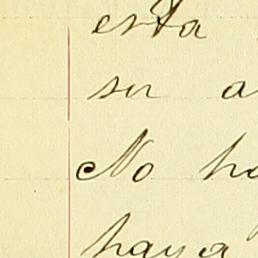 esta
su a
No ha
haya